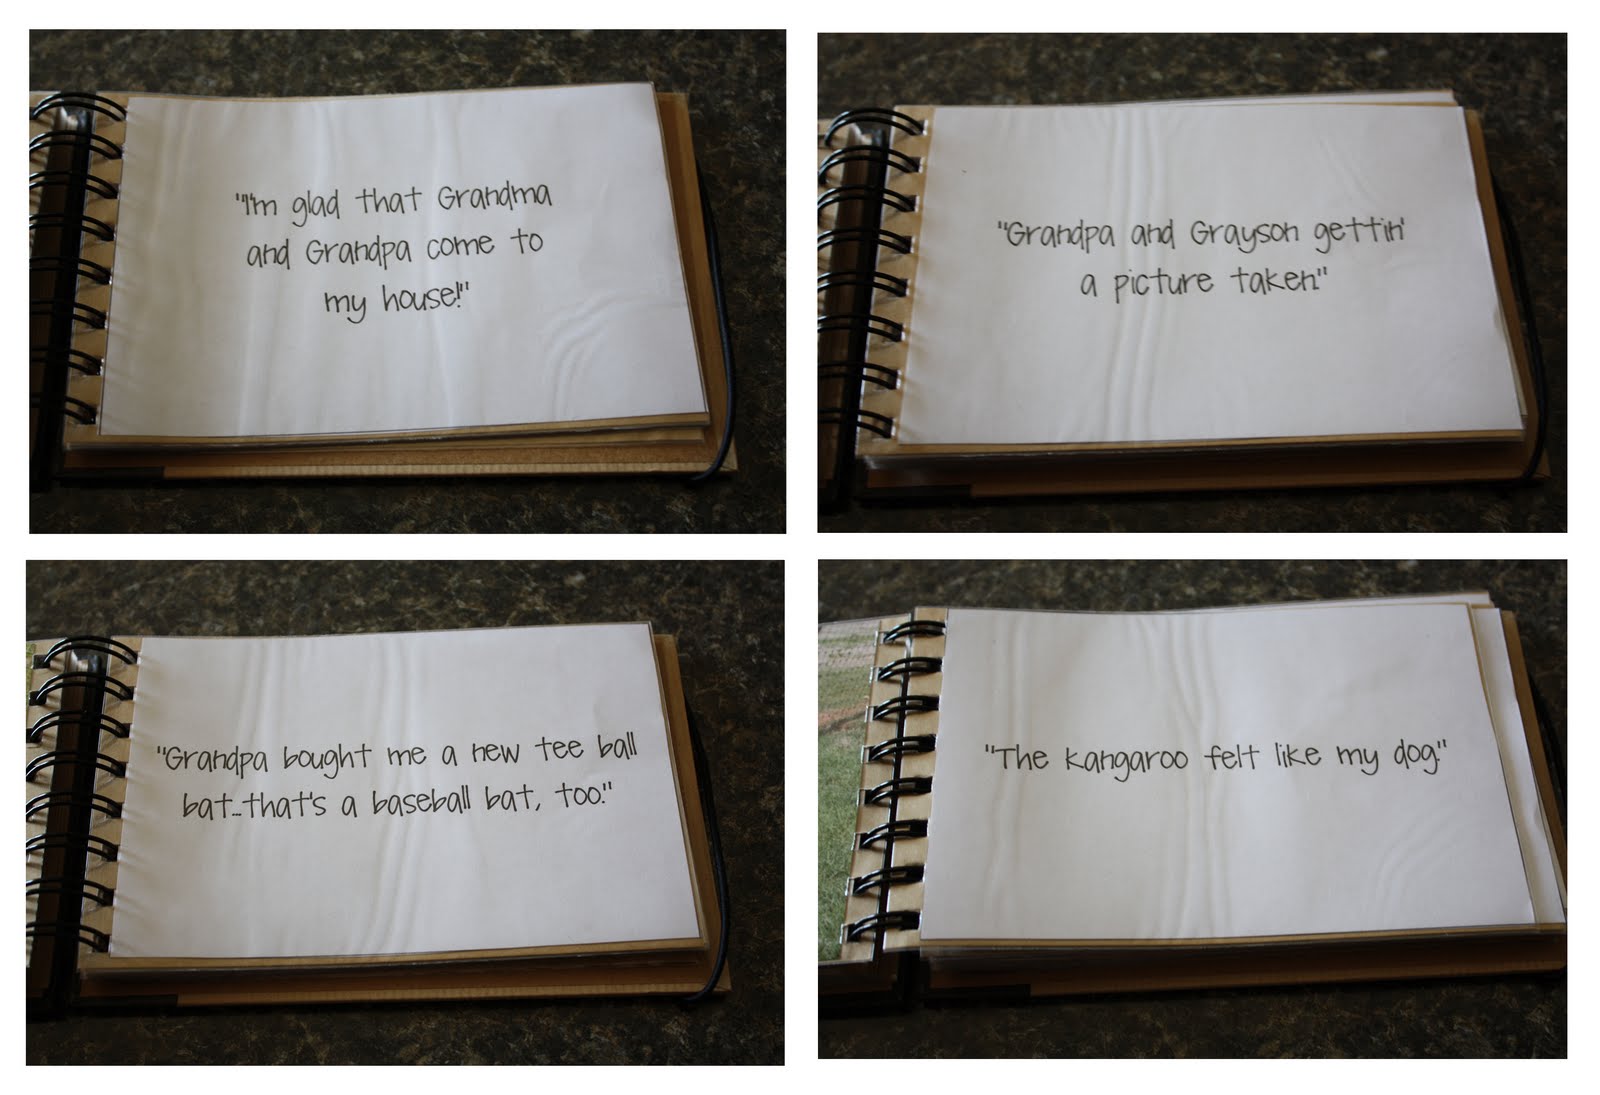 "I'm glad that Grandma
and Grandpa come to
my house!"
"Grandpa and Grayson gettin'
a picture taken."
"Grandpa bought me a new tee ball
bat...that's a baseball bat, too."
"The kangaroo felt like my dog."